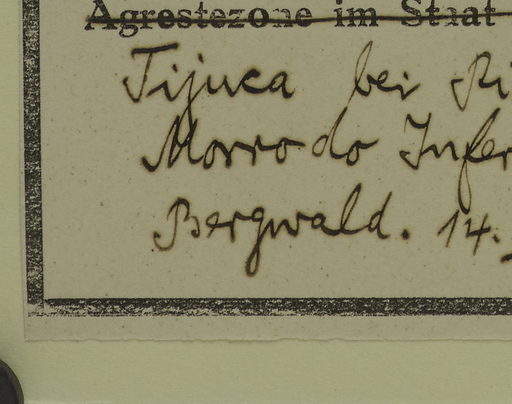 Agrestezone im Staat
Tijuca bei Ri
Morro do Infer
Bergwald. 14.